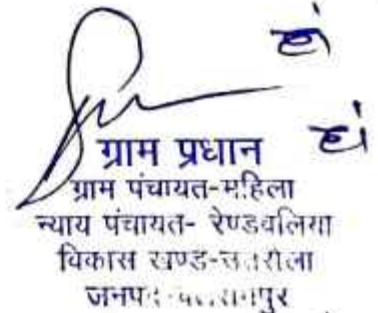 हां
हां
ग्राम प्रधान
ग्राम पंचायत-महिला
न्याय पंचायत- रेण्डवलिया
विकास खण्ड-उतरौला
जनपद-बलरामपुर